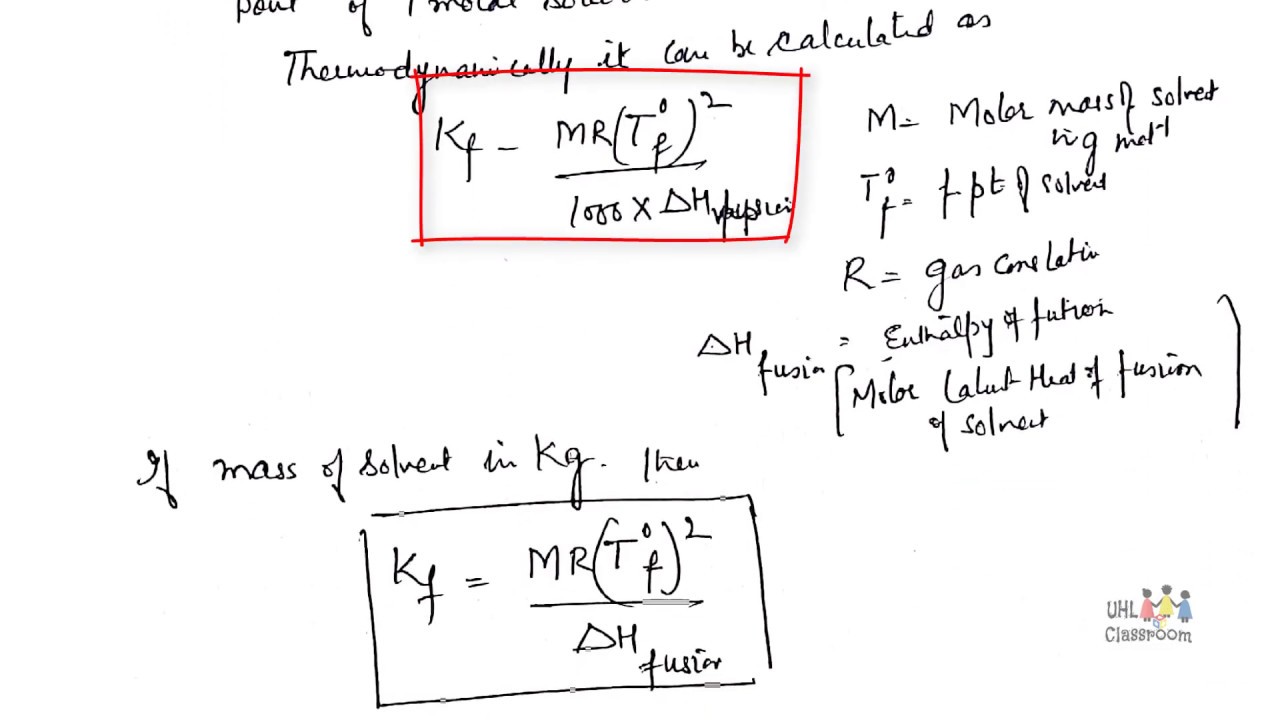 point of 1 molal
Thermodynamically it can be calculated as
K_f = MR(T°_f)² / 1000 × ΔH
M = Molar mass of solvent
in g mol⁻¹
T°_f = f pt of solvent
R = gas
ΔH_fusion = Enthalpy of fusion
[Molar Latent Heat of fusion
of solvent]
If mass of solvent in Kg. then
K_f = MR(T°_f)² / ΔH_fusion
UHL
Classroom